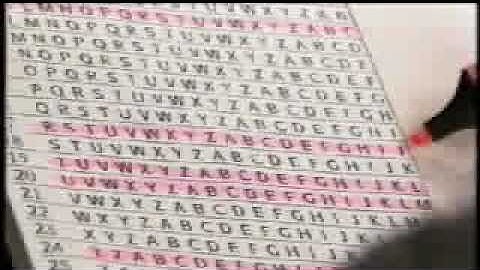 L M N O P Q R S T U V W X Y Z A B C
M N O P Q R S T U V W X Y Z A B C D
N O P Q R S T U V W X Y Z A B C D E
O P Q R S T U V W X Y Z A B C D E F
P Q R S T U V W X Y Z A B C D E F G
Q R S T U V W X Y Z A B C D E F G H
R S T U V W X Y Z A B C D E F G H I
18 S T U V W X Y Z A B C D E F G H I J K
19 T U V W X Y Z A B C D E F G H I J K L
20 U V W X Y Z A B C D E F G H I J K L M
21 V W X Y Z A B C D E F G H I J K L M
22 W X Y Z A B C D E F G H I J K
23 X Y Z A B C D E F G H I J
24 Y Z A B C D E F G H I
25